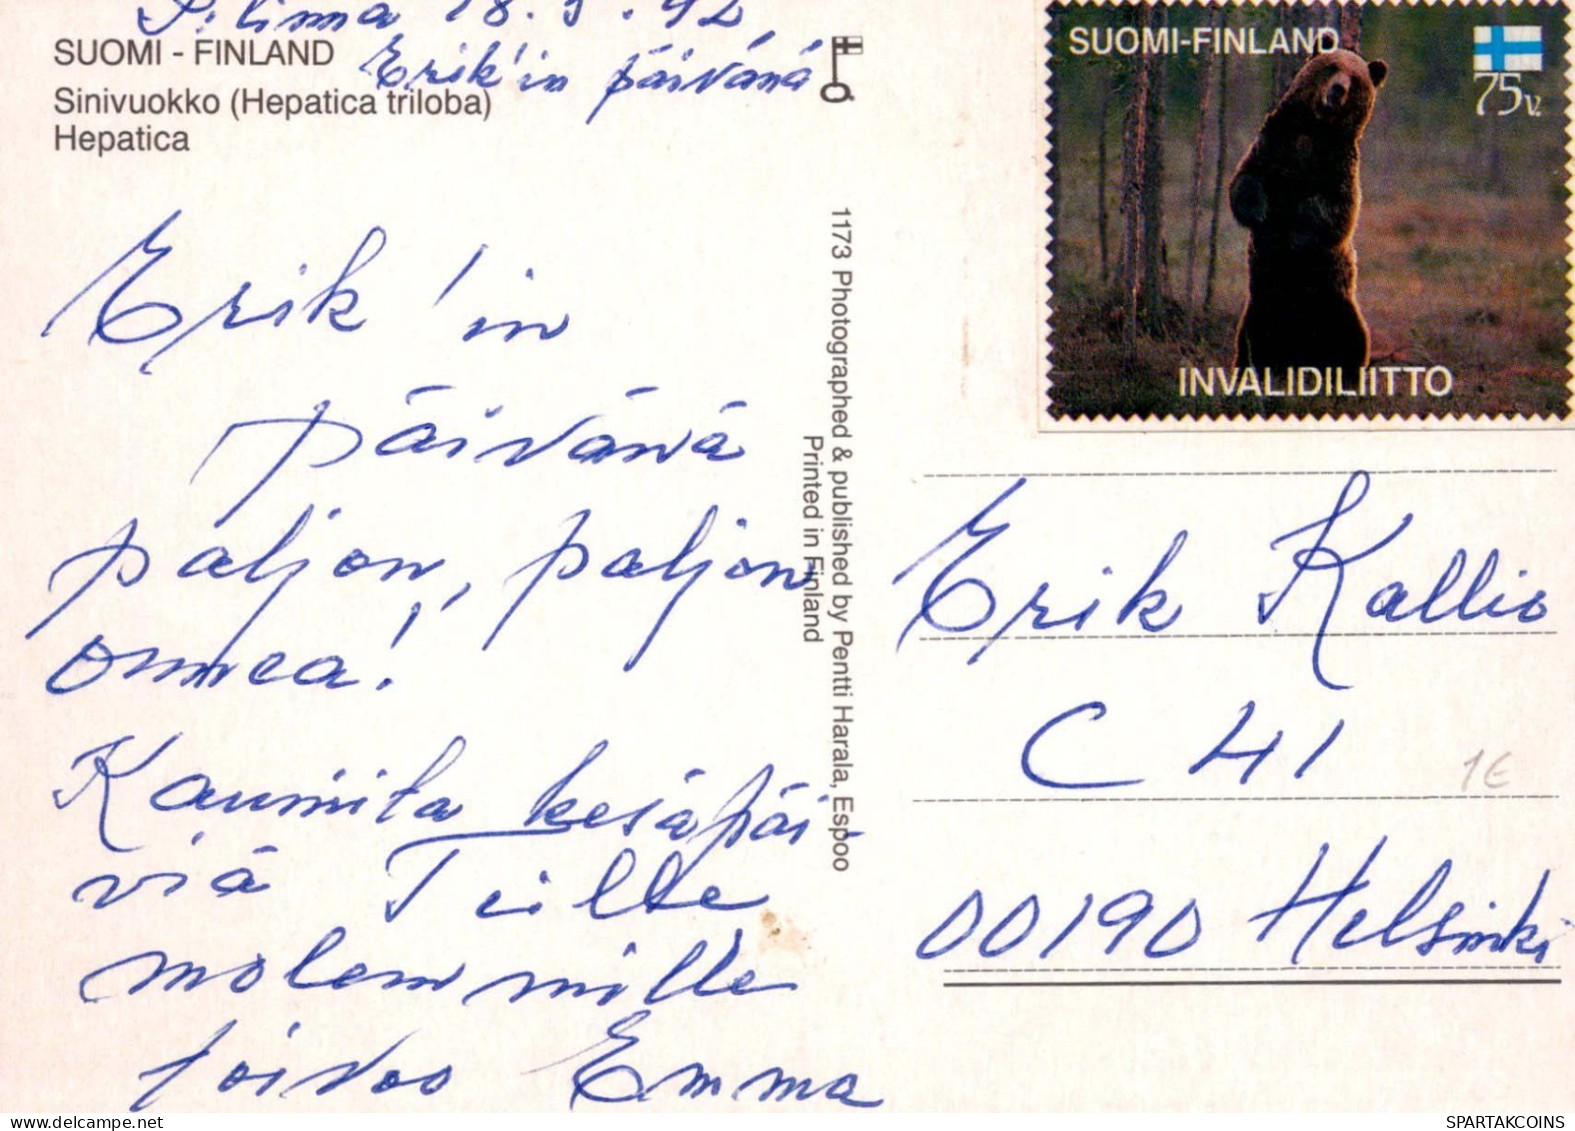 18.5.92
SUOMI - FINLAND
Erik'in päivänä
Sinivuokko (Hepatica triloba)
Hepatica
Erik'in
päivänä
paljon, paljon
onnea!
Kauniita kesäpäi-
viä Teille
molemmille
toivoo Emma
1173 Photographed & published by Pentti Harala, Espoo
Printed in Finland
SUOMI-FINLAND
75v.
INVALIDILIITTO
Erik Kallio
C 41
1€
00190 Helsinki
delcampe.net
SPARTAKCOINS